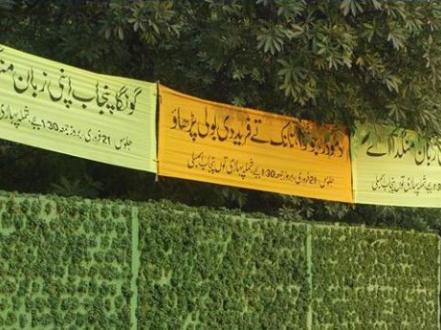 گونگا پنجاب اپنی زبان
جلوس 21 فروری بروز جمعہ 1:30 بجے، شملہ پہاڑی
نانک تے فرید دی بولی پڑھاؤ
جلوس۔ 21 فروری بروز جمعہ 1:30 بجے، شملہ پہاڑی توں پنجاب اسمبلی
زبان منگدا اے
بجے، شملہ پہاڑی توں پنجاب اسمبلی